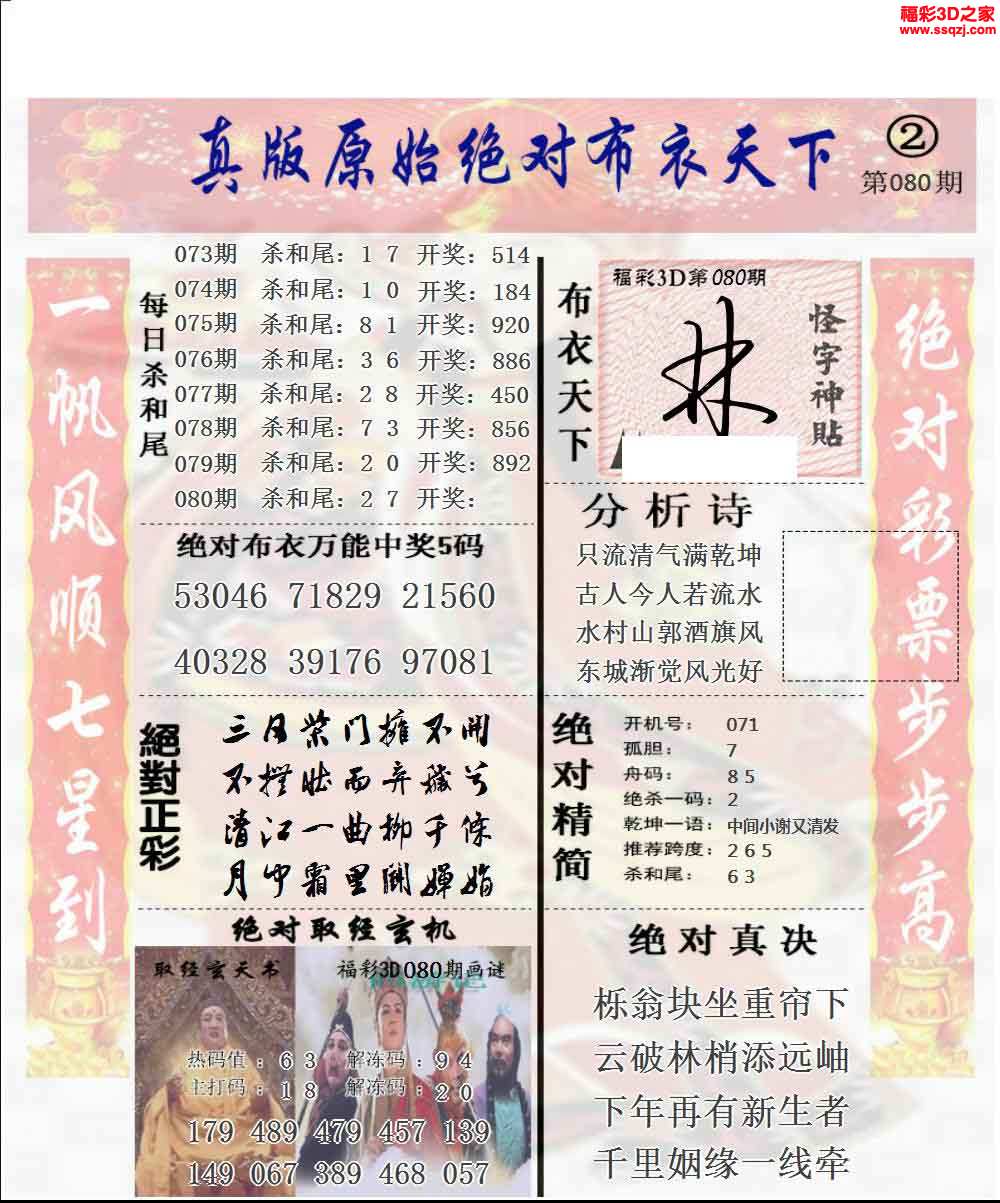 福彩3D之家
www.ssqzj.com
真版原始绝对布衣天下
②
第080期
一帆风顺七星到
每日杀和尾
073期 杀和尾：1 7 开奖：514
074期 杀和尾：1 0 开奖：184
075期 杀和尾：8 1 开奖：920
076期 杀和尾：3 6 开奖：886
077期 杀和尾：2 8 开奖：450
078期 杀和尾：7 3 开奖：856
079期 杀和尾：2 0 开奖：892
080期 杀和尾：2 7 开奖：
绝对布衣万能中奖5码
53046 71829 21560
40328 39176 97081
絕對正彩
三月柴门擁不開
清江一曲柳千條
月中霜里鬪嬋娟
绝对取经玄机
取经玄天书
福彩3D080期画谜
热码值：6 3 解冻码：9 4
主打码：1 8 解冻码：2 0
179 489 479 457 139
149 067 389 468 057
布衣天下
福彩3D第080期
怪字神貼
分析诗
只流清气满乾坤
古人今人若流水
水村山郭酒旗风
东城渐觉风光好
绝对精简
开机号：071
孤胆：7
舟码：8 5
绝杀一码：2
乾坤一语：中间小谢又清发
推荐跨度：2 6 5
杀和尾：6 3
绝对真决
栎翁块坐重帘下
云破林梢添远岫
下年再有新生者
千里姻缘一线牵
绝对彩票步步高